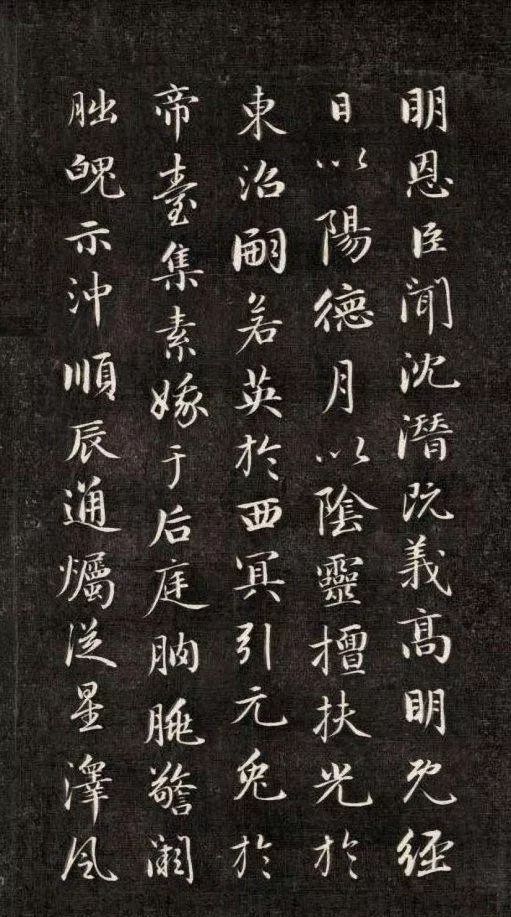 明恩臣聞沈潛既義高明既經
日以陽德月以陰靈擅扶光於
東沼嗣若英於西冥引元兔於
帝臺集素娥于后庭朒朓警闕
朏魄示沖順辰通爥從星澤風